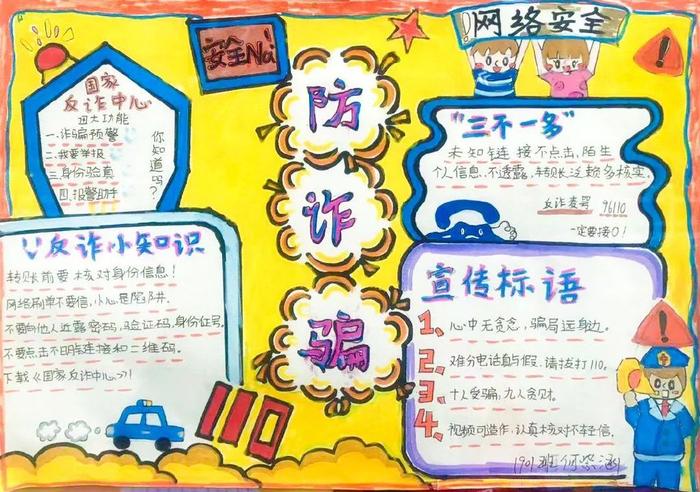 安全No.1
网络安全
防
诈
骗
国家
反诈中心
四大功能
一.诈骗预警
二.我要举报
三.身份验真
四.报警助手
你知道吗?
“三不一多”
未知链接不点击,陌生
个人信息,不透露,转账泛赖多核实。
反诈专号 96110
一定要接0!
反诈小知识
转账前要核对身份信息!
网络刷单不要信,小心是陷阱.
不要向他人透露密码,验证码,身份证号。
不要点击不明链接和二维码。
下载《国家反诈中心》!
宣传标语
1、心中无贪念,骗局远身边。
2、难分电话真与假.请拨打110。
3、十人受骗,九人贪财。
4、视频可造作,认真核对不轻信。
110
1901班